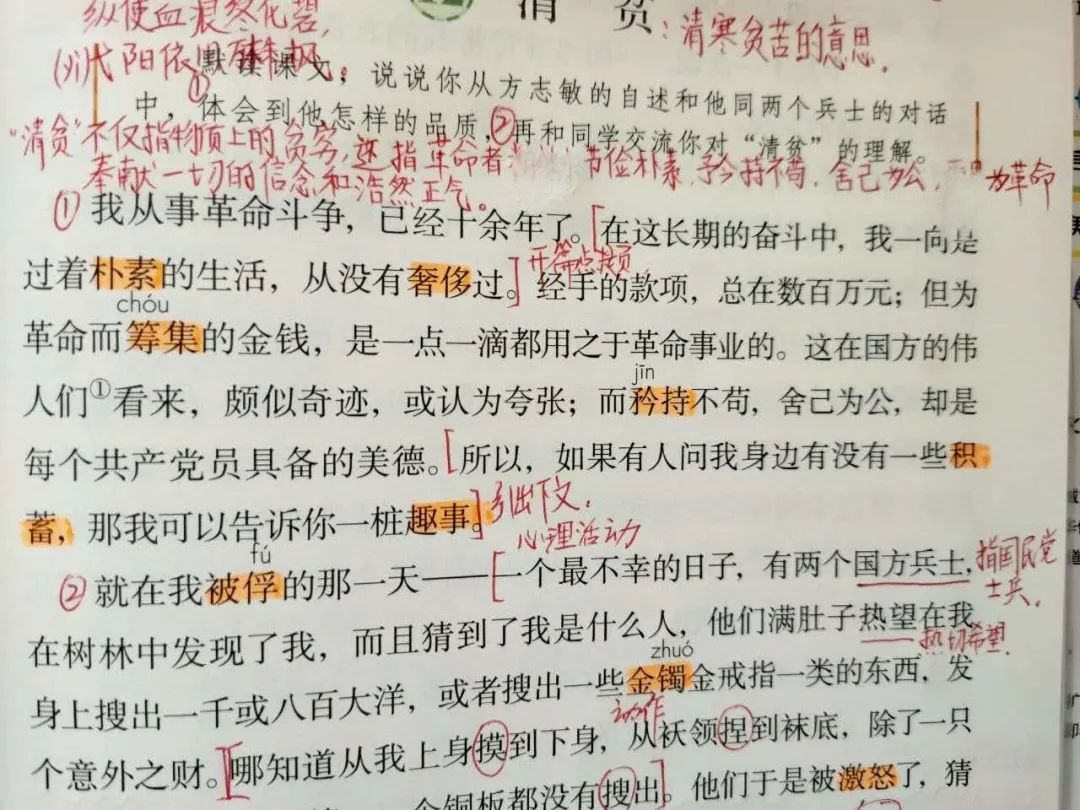 纵使血痕终化碧，
清贫：清寒贫苦的意思。
(yì)弋阳依旧
默读课文，说说你从方志敏的自述和他同两个兵士的对话
①
中，体会到他怎样的品质，②再和同学交流你对“清贫”的理解。
“清贫”不仅指物质上的贫穷，还指革命者 节俭朴素、矜持不苟、舍己为公、 为革命
奉献一切的信念和浩然正气。
①我从事革命斗争，已经十余年了。[在这长期的奋斗中，我一向是
过着朴素的生活，从没有奢侈过。]开篇点题 经手的款项，总在数百万元；但为
chóu
革命而筹集的金钱，是一点一滴都用之于革命事业的。这在国方的伟
jīn
人们①看来，颇似奇迹，或认为夸张；而矜持不苟，舍己为公，却是
每个共产党员具备的美德。[所以，如果有人问我身边有没有一些积
蓄，那我可以告诉你一桩趣事。]引出下文。
心理活动
fú
②就在我被俘的那一天——[一个最不幸的日子，有两个国方兵士，指国民党
士兵。
在树林中发现了我，而且猜到了我是什么人，他们满肚子热望在我
热切希望
zhuó
身上搜出一千或八百大洋，或者搜出一些金镯金戒指一类的东西，发
动作
个意外之财。][哪知道从我上身摸到下身，从袄领捏到袜底，除了一只
一个铜板都没有搜出]。他们于是被激怒了，猜